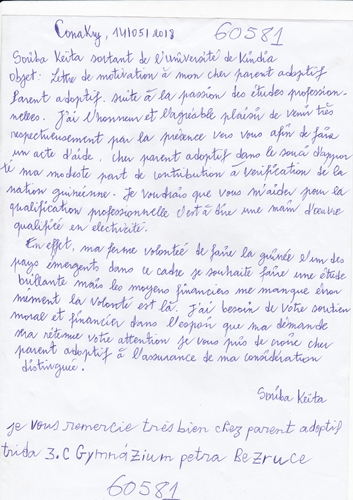 Conakry, 14/05/2018 60581
Soriba Keita sortant de l'université de Kindia
objet: Lettre de motivation à mon cher parent adoptif
Parent adoptif, suite à la passion des études profession-
nelles. J'ai l'honneur et l'agréable plaisir de venir très
respectueusement par la présence vers vous afin de faire
un acte d'aide, cher parent adoptif dans le souci d'appor
té ma modeste part de contribution à vérification de la
nation guinéenne. Je voudrais que vous m'aider pour la
qualification professionnelle c'est à dire une main d'œuvre
qualifiée en électricité.
En effet, ma ferme volontée de faire la guinée l'un des
pays émergents dans ce cadre je souhaite faire une étude
brillante mais les moyens financiers me manque énor
mement la volonté est là. J'ai besoin de votre soutien
moral et financier dans l'espoir que ma demande
sra retenue votre attention je vous pris de croire cher
parent adoptif à l'assurance de ma considération
distinguée.
Soriba Keita
je vous remercie très bien chez parent adoptif
trida 3.C Gymnázium petra Bezruce
60581